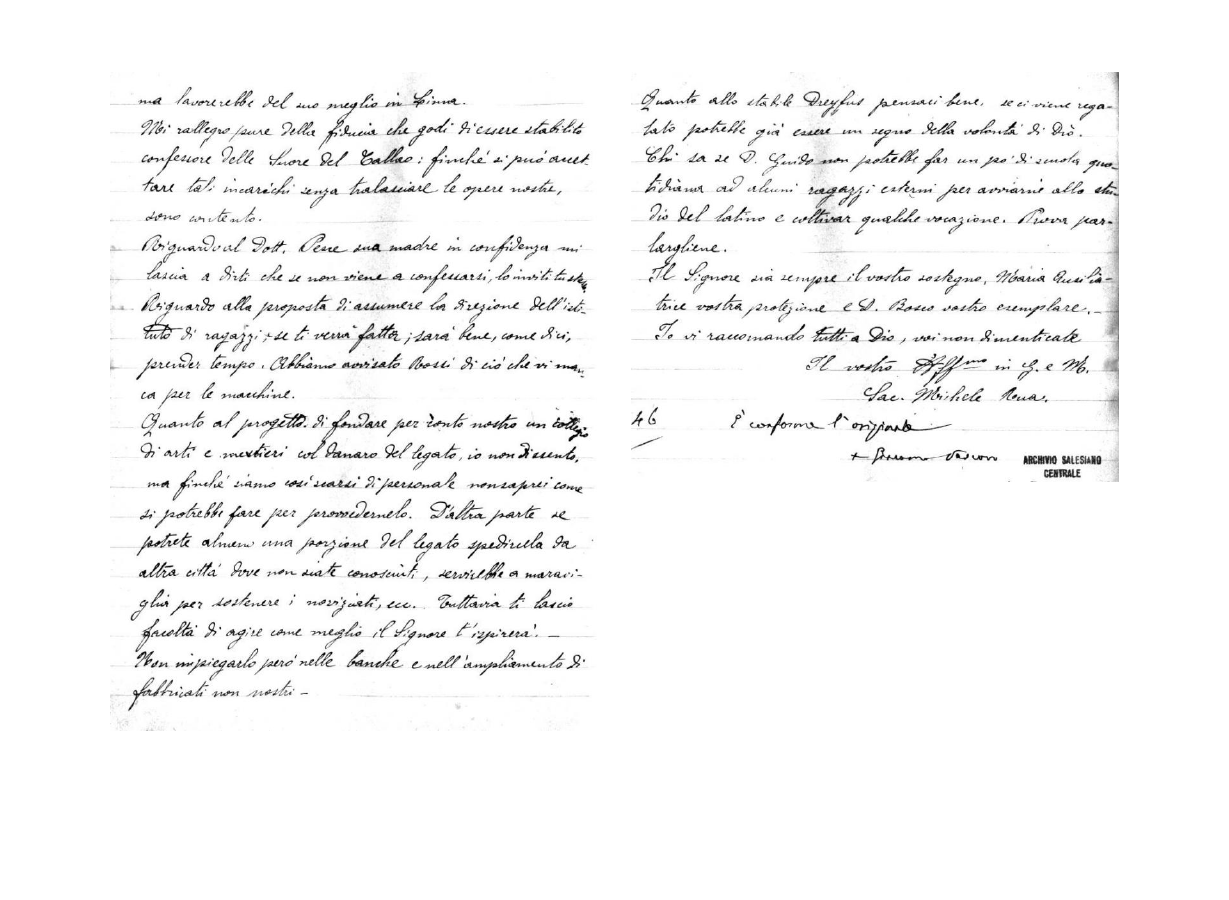 ma lavorerebbe del suo meglio in Lima.
Mi rallegro pure della fiducia che godi di essere stabilito
confessore delle Suore del Callao: finché si può accet-
tare tali incarichi senza tralasciare le opere nostre,
sono contento.
Riguardo al Dott. Pesce sua madre in confidenza mi
lascia a dirti che se non viene a confessarsi, lo inviti tu stesso.
Riguardo alla proposta di assumere la direzione dell'isti-
tuto di ragazzi, se ti verrà fatta, sarà bene, come dici,
prender tempo. Abbiamo avvisato Rossi di ciò che vi man-
ca per le macchine.
Quanto al progetto di fondare per conto nostro un collegio
di arti e mestieri col danaro del legato, io non dissento,
ma finché siamo così scarsi di personale non saprei come
si potrebbe fare per provvedernelo. D'altra parte se
potrete almeno una porzione del legato spedircela da
altra città dove non siate conosciuti, servirebbe a maravi-
glia per sostenere i noviziati, ecc. Tuttavia ti lascio
facoltà di agire come meglio il Signore t'ispirerà. —
Non impiegarlo però nelle banche e nell'ampliamento di
fabbricati non nostri —
Quanto allo stabile Dreyfus pensaci bene, se ci viene rega-
lato potrebbe già essere un segno della volontà di Dio.
Chi sa se D. Guido non potrebbe far un po' di scuola quo-
tidiana ad alcuni ragazzi esterni per avviarne allo stu-
dio del latino e coltivar qualche vocazione. Prova par-
largliene.
Il Signore sia sempre il vostro sostegno, Maria Ausilia-
trice vostra protezione e D. Bosco vostro esemplare. —
Io vi raccomando tutti a Dio, voi non dimenticate
Il vostro Aff.mo in G. e M.
Sac. Michele Rua.
46 È conforme l'originale
ARCHIVIO SALESIANO
CENTRALE